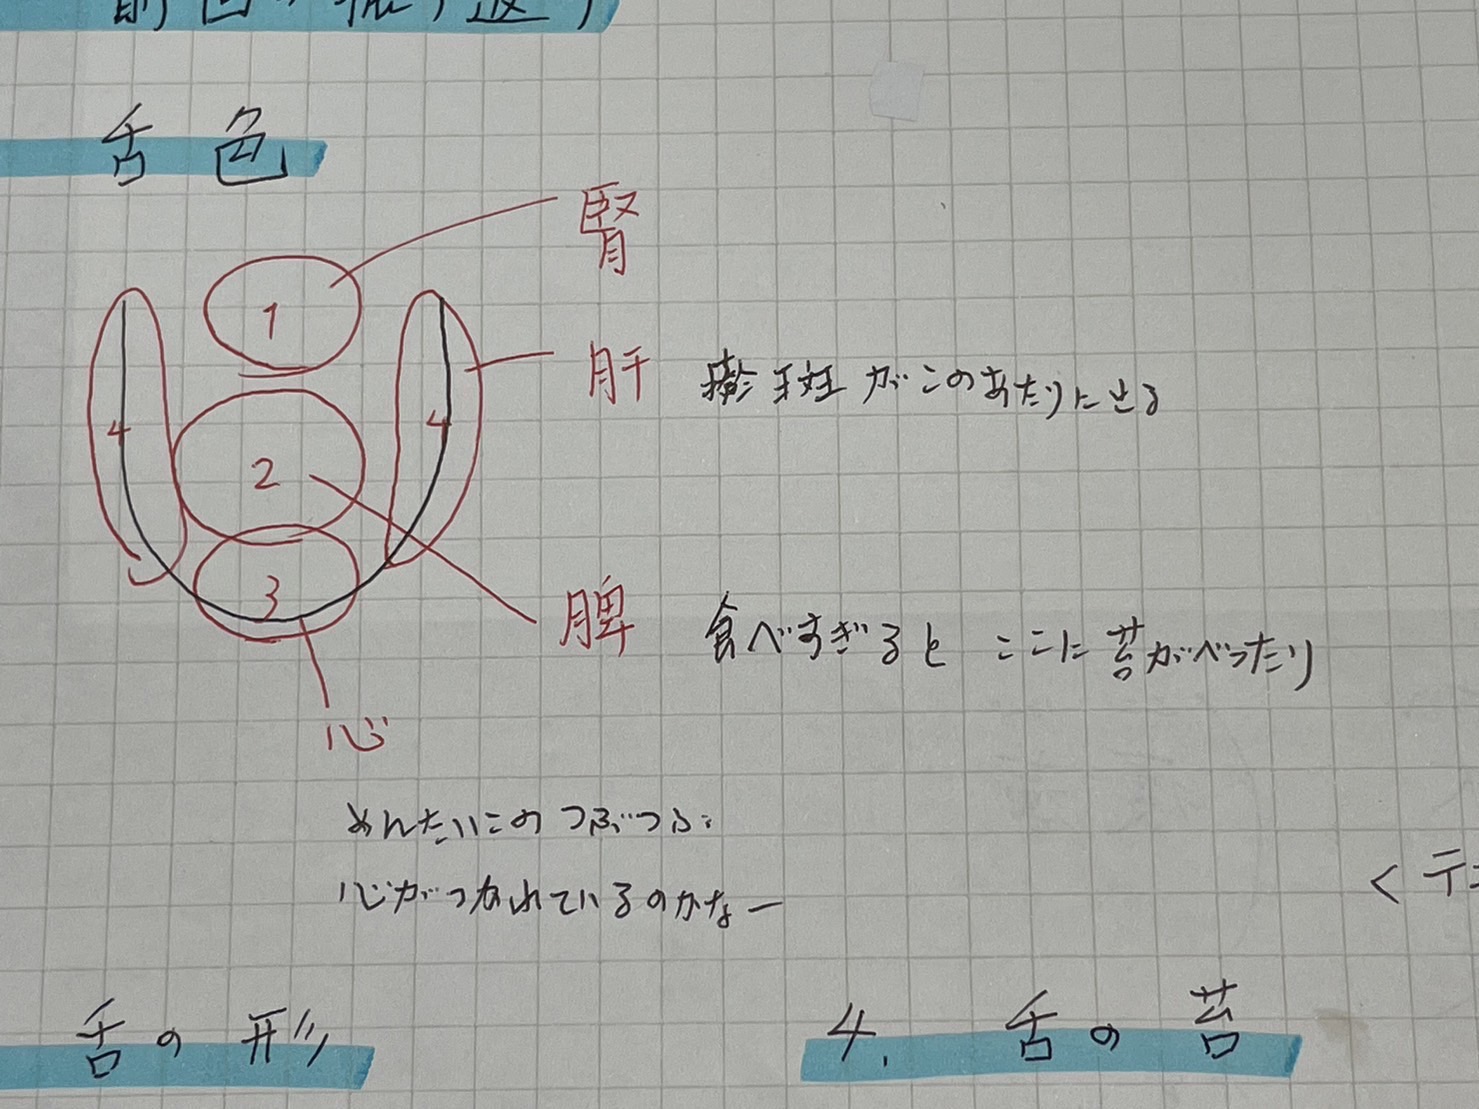 前回の振り返り
舌色
腎
1
肝 斑がこのあたりにでる
4 4
2
3
脾 食べすぎると ここに苔がべったり
心
めんたいこのつぶつぶ
心がつかれているのかなー
<テ
舌の形
4. 舌の苔